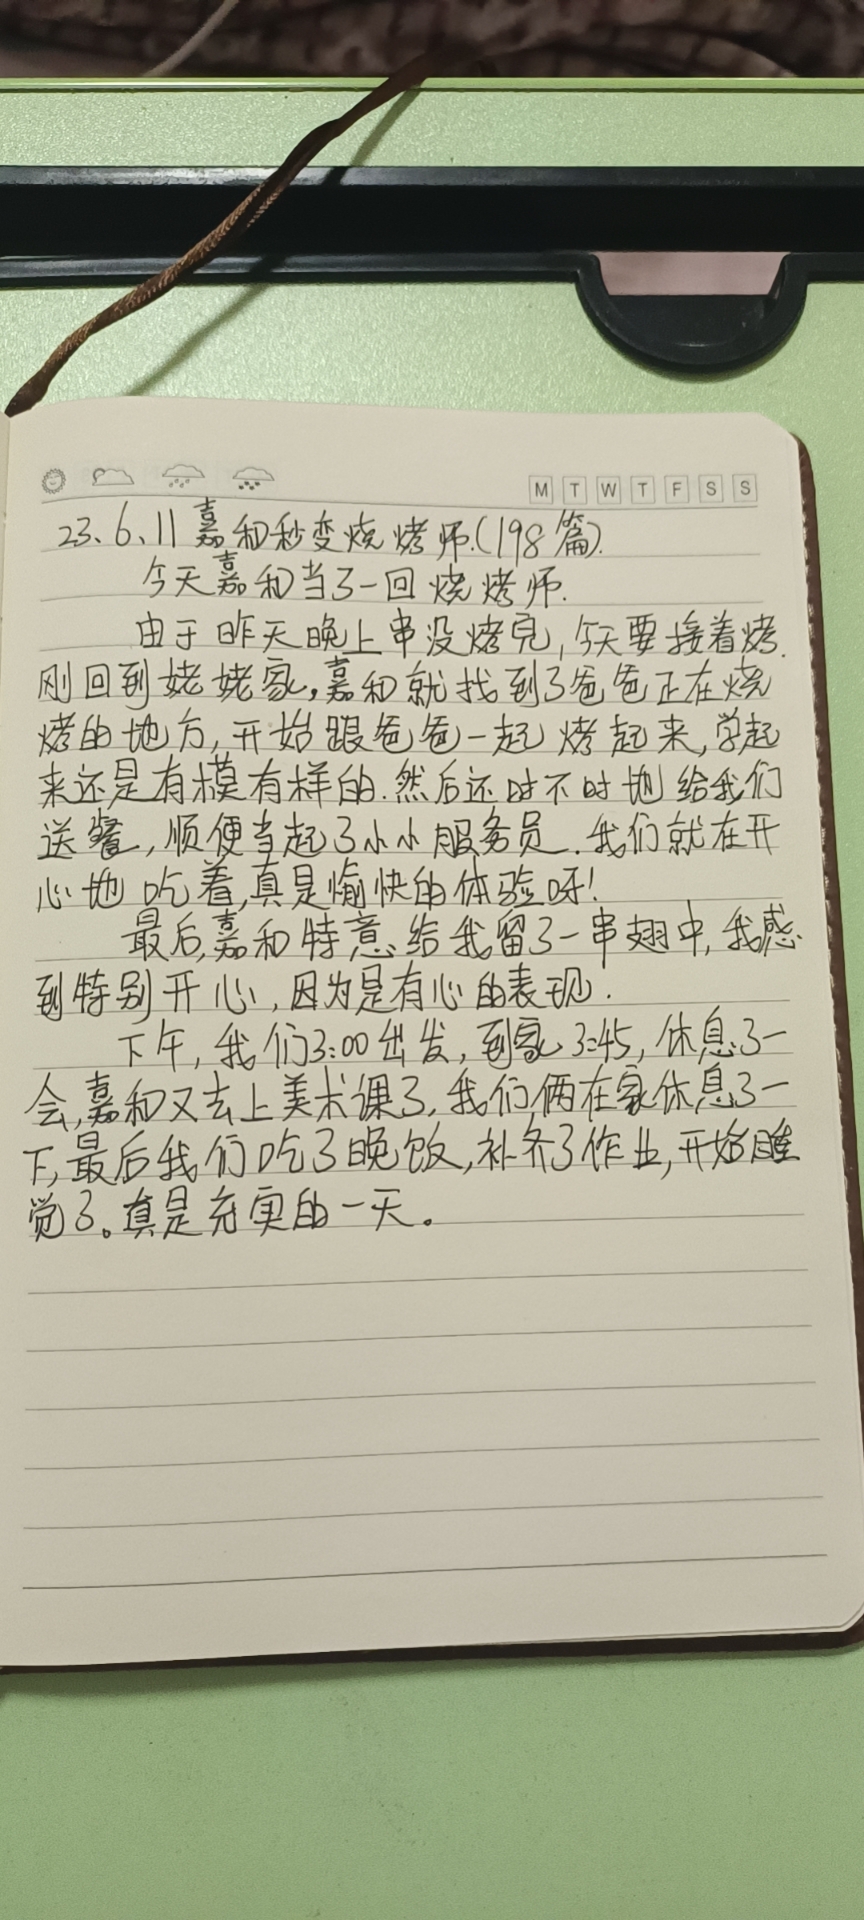 M T W T F S S
23.6.11 嘉和秒变烧烤师.(198篇).
今天嘉和当了一回烧烤师.
由于昨天晚上串没烤完,今天要接着烤.
刚回到姥姥家,嘉和就找到了爸爸正在烧
烤的地方,开始跟爸爸一起烤起来,学起
来还是有模有样的.然后还时不时地给我们
送餐,顺便当起了小小服务员.我们就在开
心地吃着,真是愉快的体验呀!
最后,嘉和特意给我留了一串翅中,我感
到特别开心,因为是有心的表现.
下午,我们3:00出发,到家3:45,休息了一
会,嘉和又去上美术课了,我们俩在家休息了一
下,最后我们吃了晚饭,补齐了作业,开始睡
觉了。真是充实的一天。